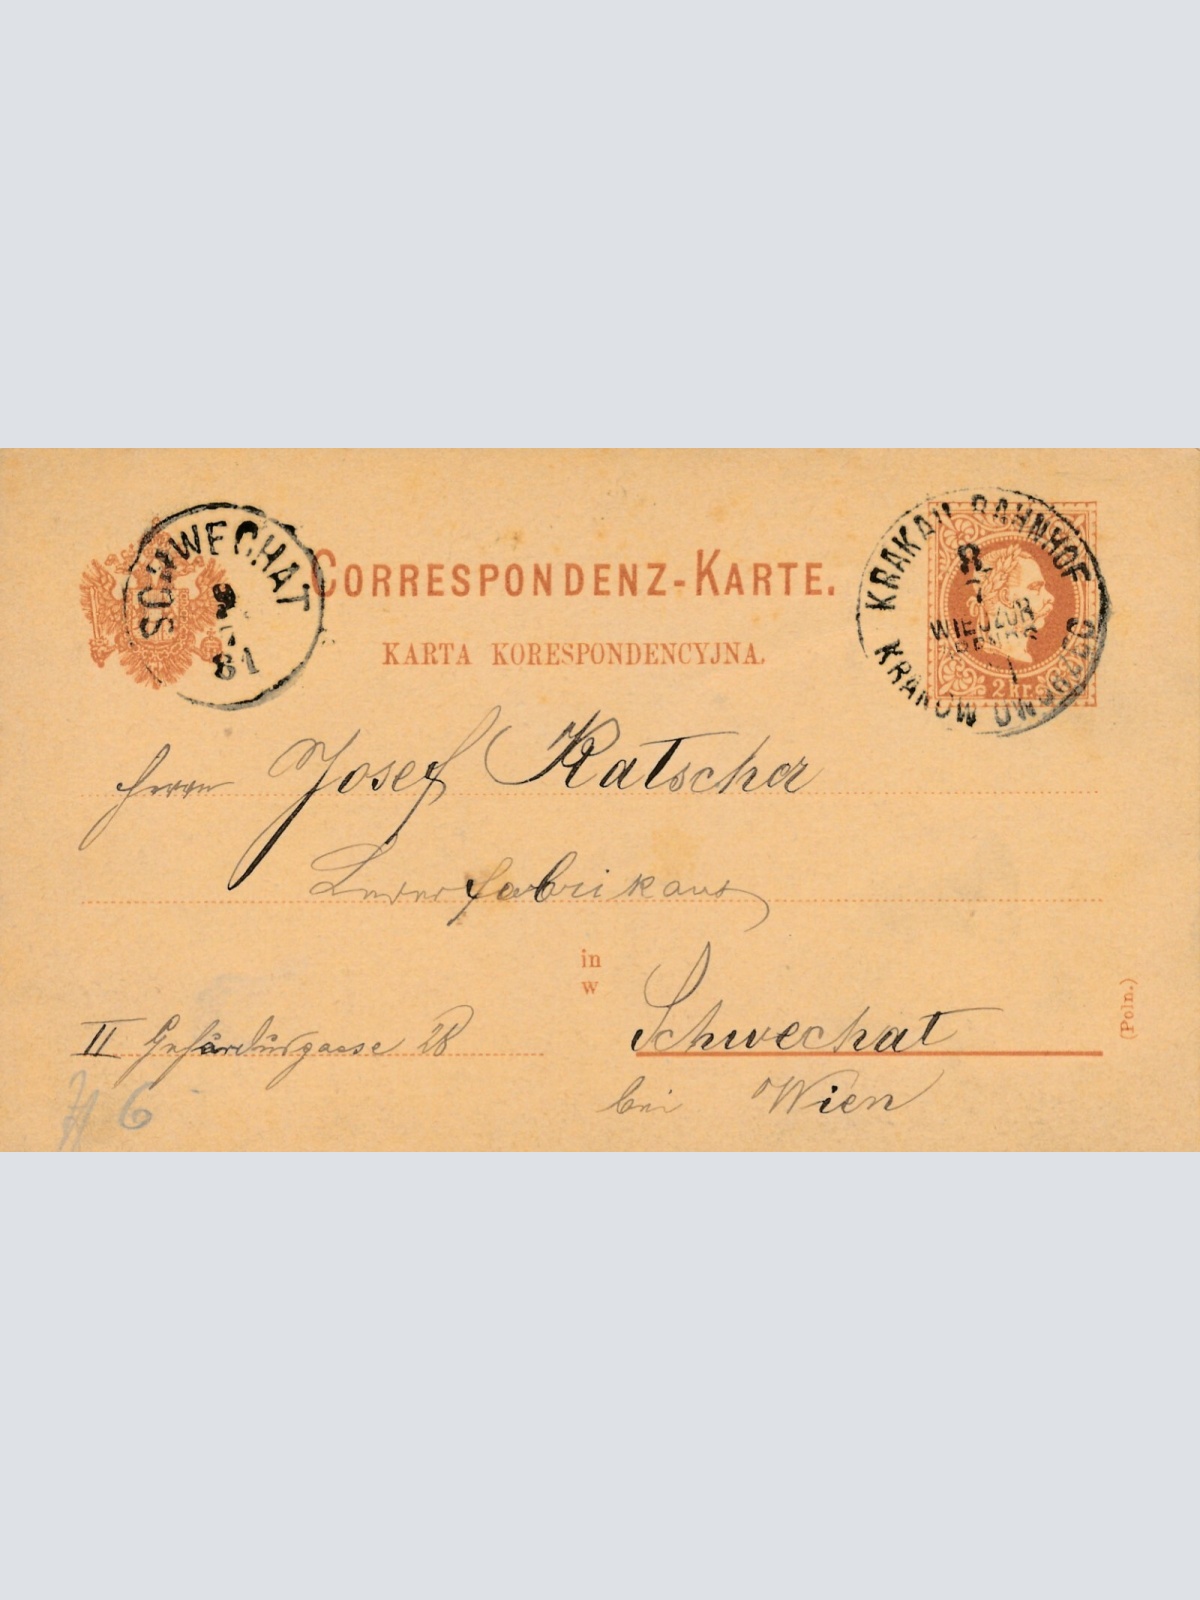 SCHWECHAT
9
7
81
CORRESPONDENZ-KARTE.
KARTA KORESPONDENCYJNA.
KRAKAU BAHNHOF
8
7
WIECZÓR
ABENDS
KRAKÓW DWORZEC
2 kr.
Herrn Josef Katscher
Lederfabrikant
in
w
Schwechat
II 28
bei Wien
6
(Poln.)